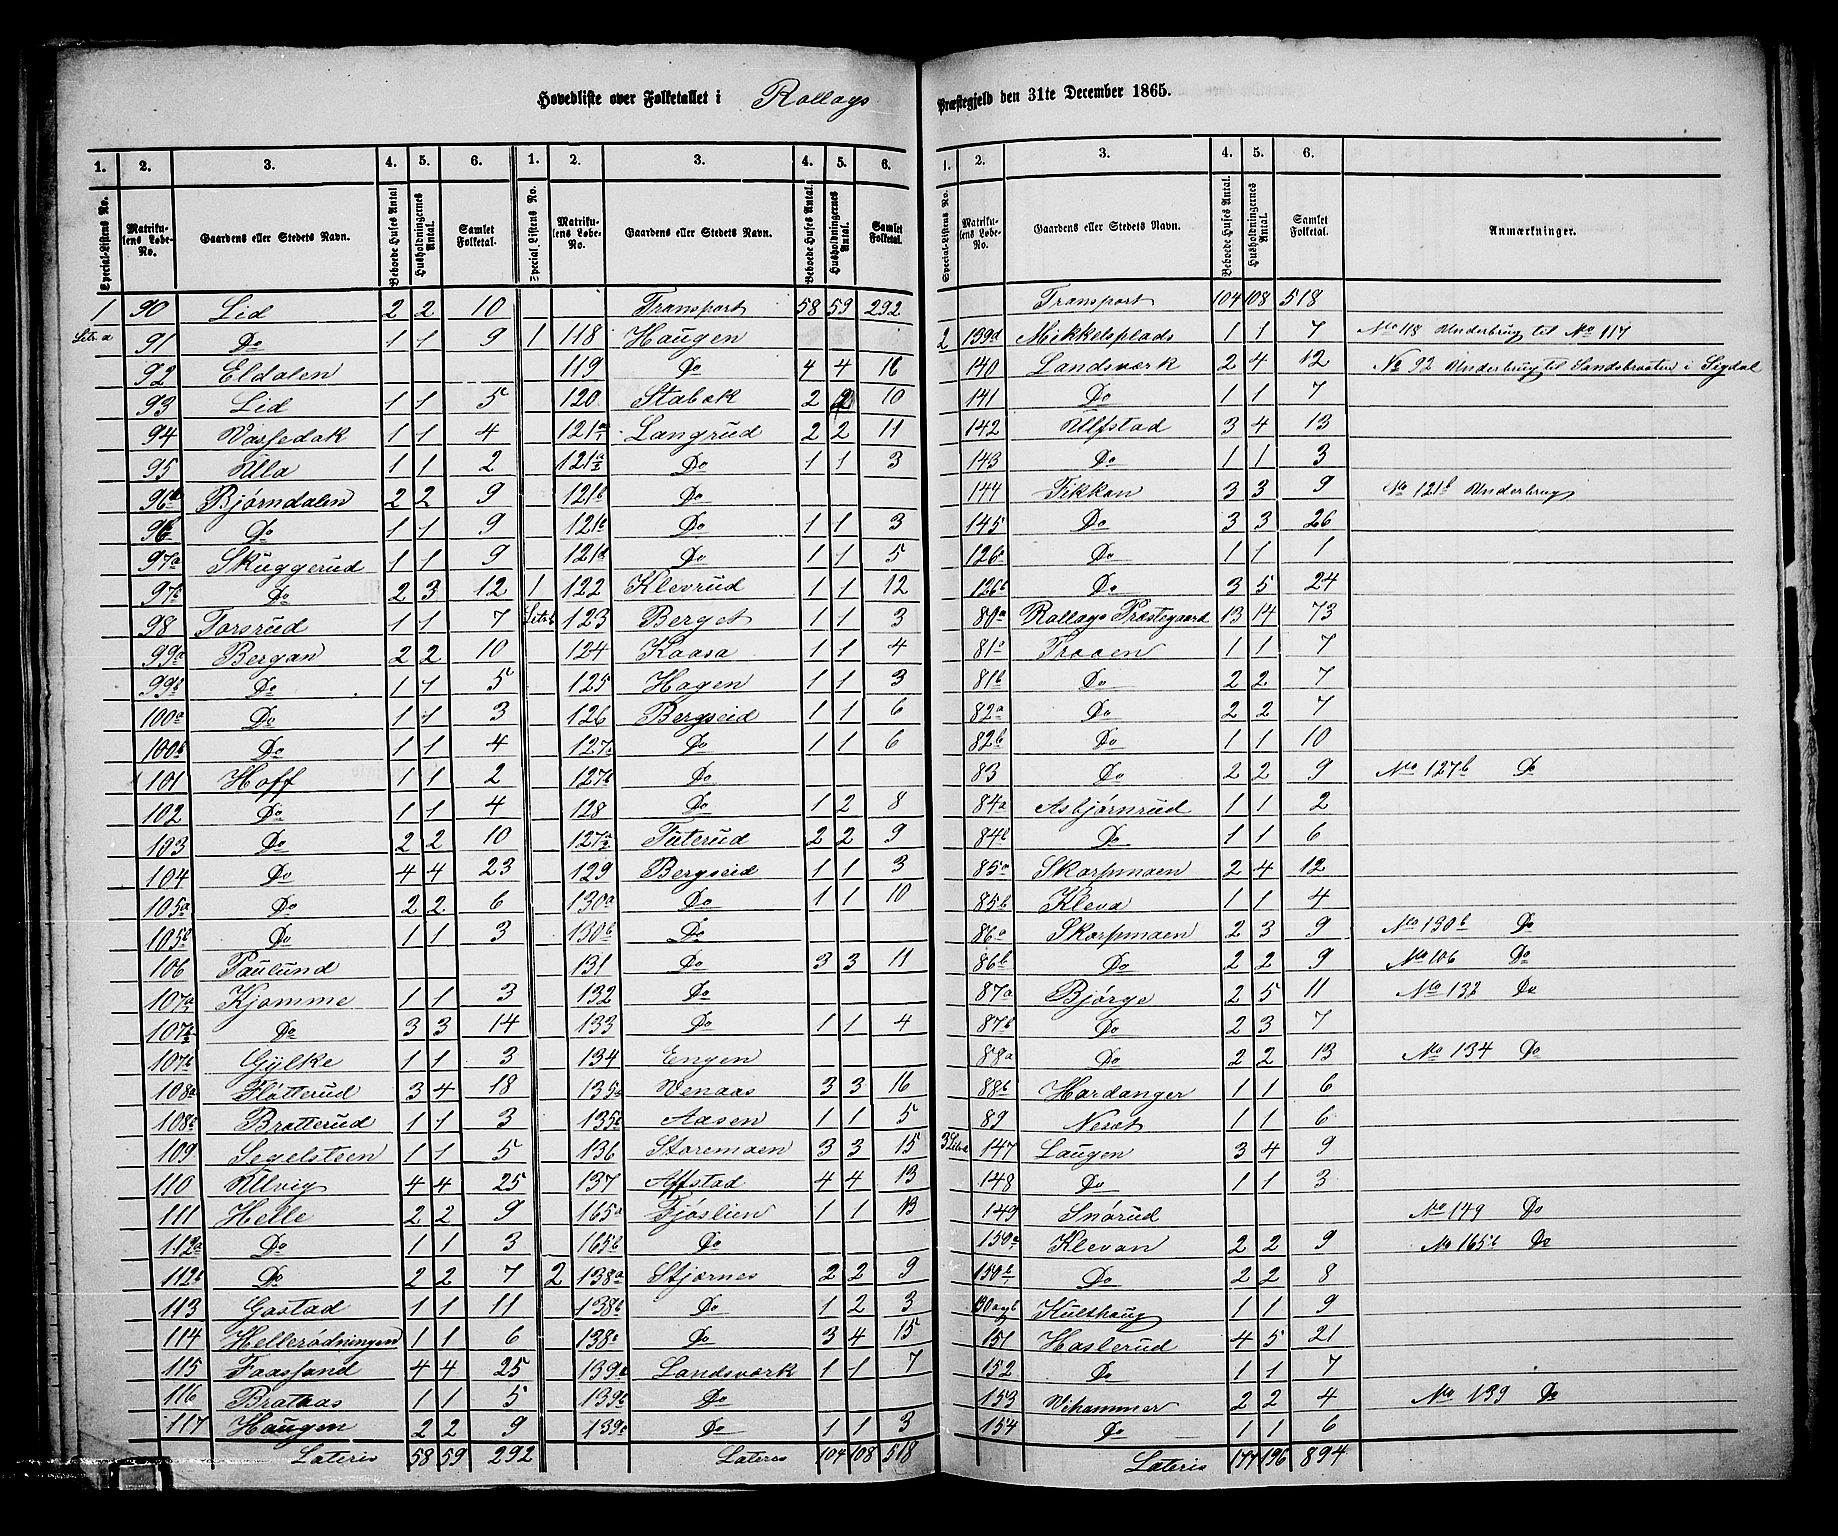 Hovedliste over Folketallet i Rollags Præstegjeld den 31te December 1865.
1. 2. 3. 4. 5. 6. 1. 2. 3. 4. 5. 6.
Special-Listens No. Matrikulens Løbe-No. Gaardens eller Stedets Navn. Beboede Huses Antal Husholdningernes Antal. Samlet Folketal. Special-Listens No. Matrikulens Løbe-No. Gaardens eller Stedets Navn. Beboede Huses Antal. Husholdningernes Antal. Samlet Folketal.
1 90 Lid 2 2 10 Transport 58 59 292
Litr. a 91 Do 1 1 9 1 118 Haugen
92 Eldalen 119 Do 4 4 16
93 Lid 1 1 5 120 Stabok 2 2 10
94 Vasfedok 1 1 4 121a1 Langrud 2 2 11
95 Ula 1 1 2 121a2 Do 1 1 3
96b Bjørndalen 2 2 9 121b Do
96 Do 1 1 9 121c Do 1 1 3
97a Skuggerud 1 1 9 121d Do 1 1 5
97b Do 2 3 12 1 122 Klevrud 1 1 12
98 Torsrud 1 1 7 Litr. b 123 Berget 1 1 3
99a Bergan 2 2 10 124 Kaasa 1 1 4
99b Do 1 1 5 125 Hagen 1 1 3
100a Do 1 1 3 126 Bergseid 1 1 6
100b Do 1 1 4 127a Do 1 1 6
101 Hoff 1 1 2 127b Do
102 Do 1 1 4 128 Do 1 2 8
103 Do 2 2 10 127a2 Tuterud 2 2 9
104 Do 4 4 23 129 Bergseid 1 1 3
105a Do 2 2 6 130a Do 1 1 10
105b Do 1 1 3 130b Do
106 Paulund 131 Do 3 3 11
107a Kjomme 1 1 3 132 Do
107 Do 3 3 14 133 Do 1 1 4
107b Gylke 1 1 3 134 Engen
108a Fløtterud 3 4 18 135a Venaas 3 3 16
108b Bratterud 1 1 3 135b Aasen 1 1 5
109 Segelsteen 1 1 5 136 Staremoen 3 3 15
110 Ulvig 4 4 25 137 Alfstad 4 4 13
111 Helle 2 2 9 165a Fjøslien 1 1 13
112a Do 1 1 3 165b Do
112b Do 2 2 7 2 138a Stjørnes 2 2 9
113 Gastad 1 1 11 138b Do 1 2 3
114 Hellerødningen 1 1 6 138c Do 3 4 15
115 Faasland 4 4 25 139a Landsværk 1 1 7
116 Brataas 1 1 5 139b Do
117 Haugen 2 2 9 139c Do 1 1 3
Lateris 58 59 292 Lateris 104 108 518
1. 2. 3. 4. 5. 6.
Special-Listens No. Matrikulens Løbe-No. Gaardens eller Stedets Navn. Beboede Huses Antal. Husholdningernes Antal. Samlet Folketal. Anmærkninger.
Transport 104 108 518
2 139d Mikkelsplads 1 1 7 No 118 Underbrug til No 117
140 Landsværk 2 4 12 No 92 Underbrug til Sandsbraaten i Sigdal
141 Do 1 1 7
142 Ulfstad 3 4 13
143 Do 1 1 3
144 Tikkon 3 3 9 No 121b Underbrug
145 Do 3 3 26
126a Do 1 1 1
126b Do 3 5 24
80a Rollags Præstegaard 13 14 73
81a Traaen 1 1 7
81b Do 2 2 7
82a Do 2 2 7
82b Do 1 1 10
83 Do 2 2 9 No 127b Do
84a Asbjørnrud 1 1 2
84b Do 1 1 6
85a Skarpmoen 2 4 12
85b Kleva 1 1 4
86a Skarpmoen 2 3 9 No 130b Do
86b Do 2 2 9 No 106 Do
87a Bjørge 2 5 11 No 132 Do
87b Do 2 3 7
88a Do 2 2 13 No 134 Do
88b Hardanger 1 1 6
89 Nesøt 1 1 6
3 Litr. a 147 Laugen 3 4 9
148 Do 1 1 3
149 Snørud No 149 Do
150a Klevan 2 2 9 No 165b Do
150b Do 2 2 8
Kulthaug 1 1 9
151 Haslerud 4 5 21
152 Do 1 1 7
153 Vihammer 2 2 4 No 139 Do
154 Do 1 1 6
Lateris 177 196 894